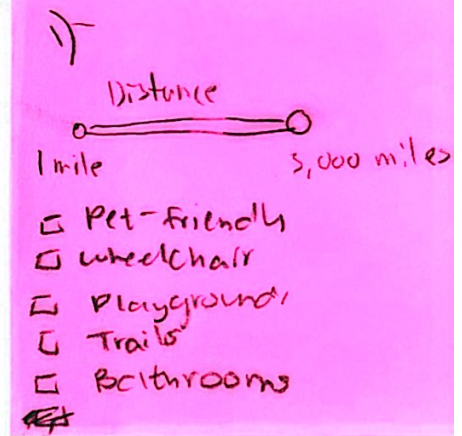 Distance
1 mile 5,000 miles
Pet-friendly
wheelchair
Playground
Trails
Bathrooms